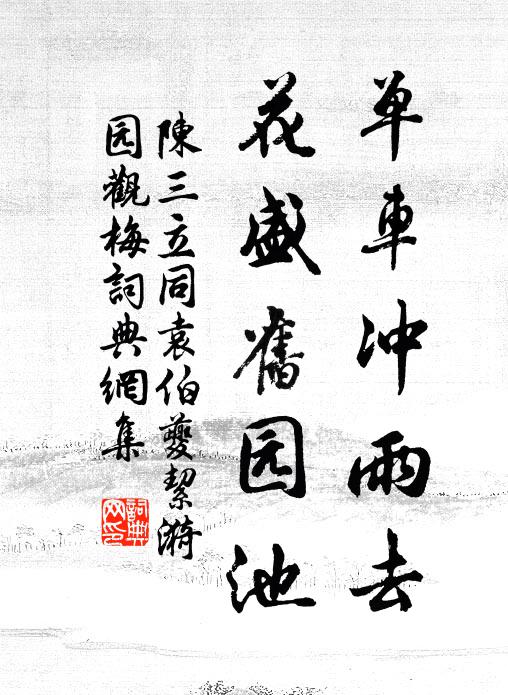 单車冲雨去
花盛舊园池
陳三立同袁伯夔絜漪
园觀梅詞典網集
詞典
网印